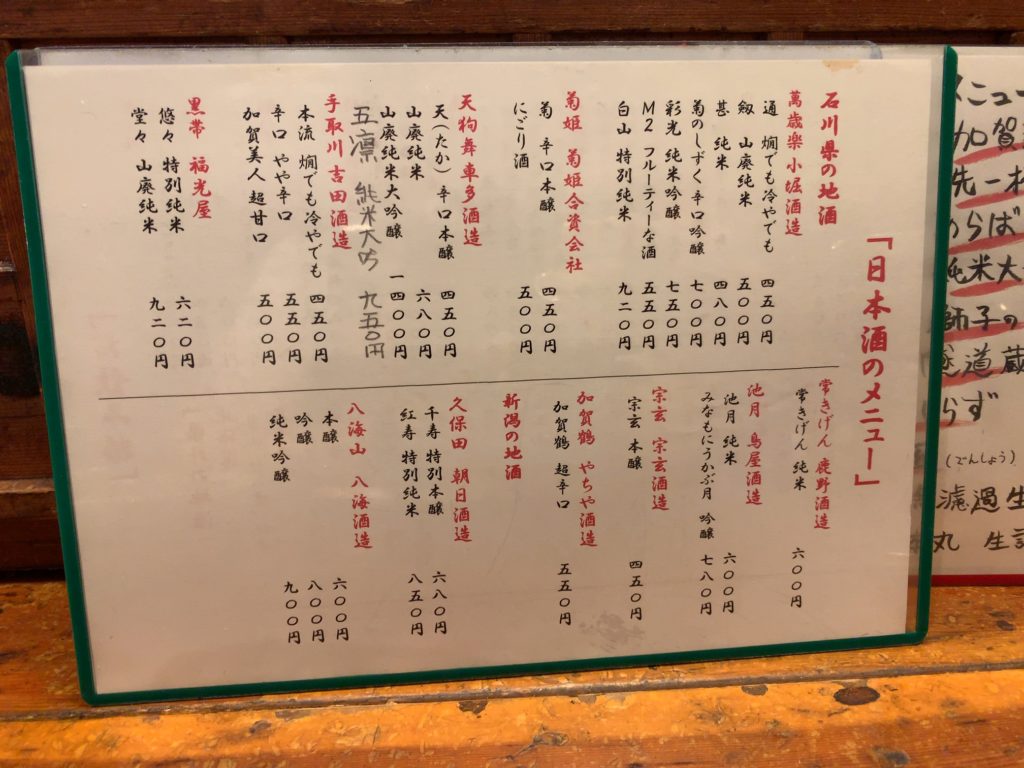 「日本酒のメニュー」
石川県の地酒
萬歳楽 小堀酒造
通 燗でも冷やでも 四五〇円
劔 山廃純米 五〇〇円
甚 純米 四八〇円
菊のしずく 辛口吟醸 七〇〇円
彩光 純米吟醸 七五〇円
M2 フルーティーな酒 五五〇円
白山 特別純米 九二〇円
菊姫 菊姫合資会社
菊 辛口本醸 四五〇円
にごり酒 五〇〇円
天狗舞 車多酒造
天(たか) 辛口本醸 四五〇円
山廃純米 六八〇円
山廃純米大吟醸 一四〇〇円
五凛 純米大吟 九五〇円
手取川 吉田酒造
本流 燗でも冷やでも 四五〇円
辛口 やや辛口 五五〇円
加賀美人 超甘口 五〇〇円
黒帯 福光屋
悠々 特別純米 六二〇円
堂々 山廃純米 九二〇円
常きげん 鹿野酒造
常きげん 純米 六〇〇円
池月 鳥屋酒造
池月 純米 六〇〇円
みなもにうかぶ月 吟醸 七八〇円
宗玄 宗玄酒造
宗玄 本醸 四五〇円
加賀鶴 やちや酒造
加賀鶴 超辛口 五五〇円
新潟の地酒
久保田 朝日酒造
千寿 特別本醸 六八〇円
紅寿 特別純米 八五〇円
八海山 八海酒造
本醸 六〇〇円
吟醸 八〇〇円
純米吟醸 九〇〇円
メニュー
加賀
純米大
師子の
隧道蔵
らず
(でんしょう)
濾過生
丸 生